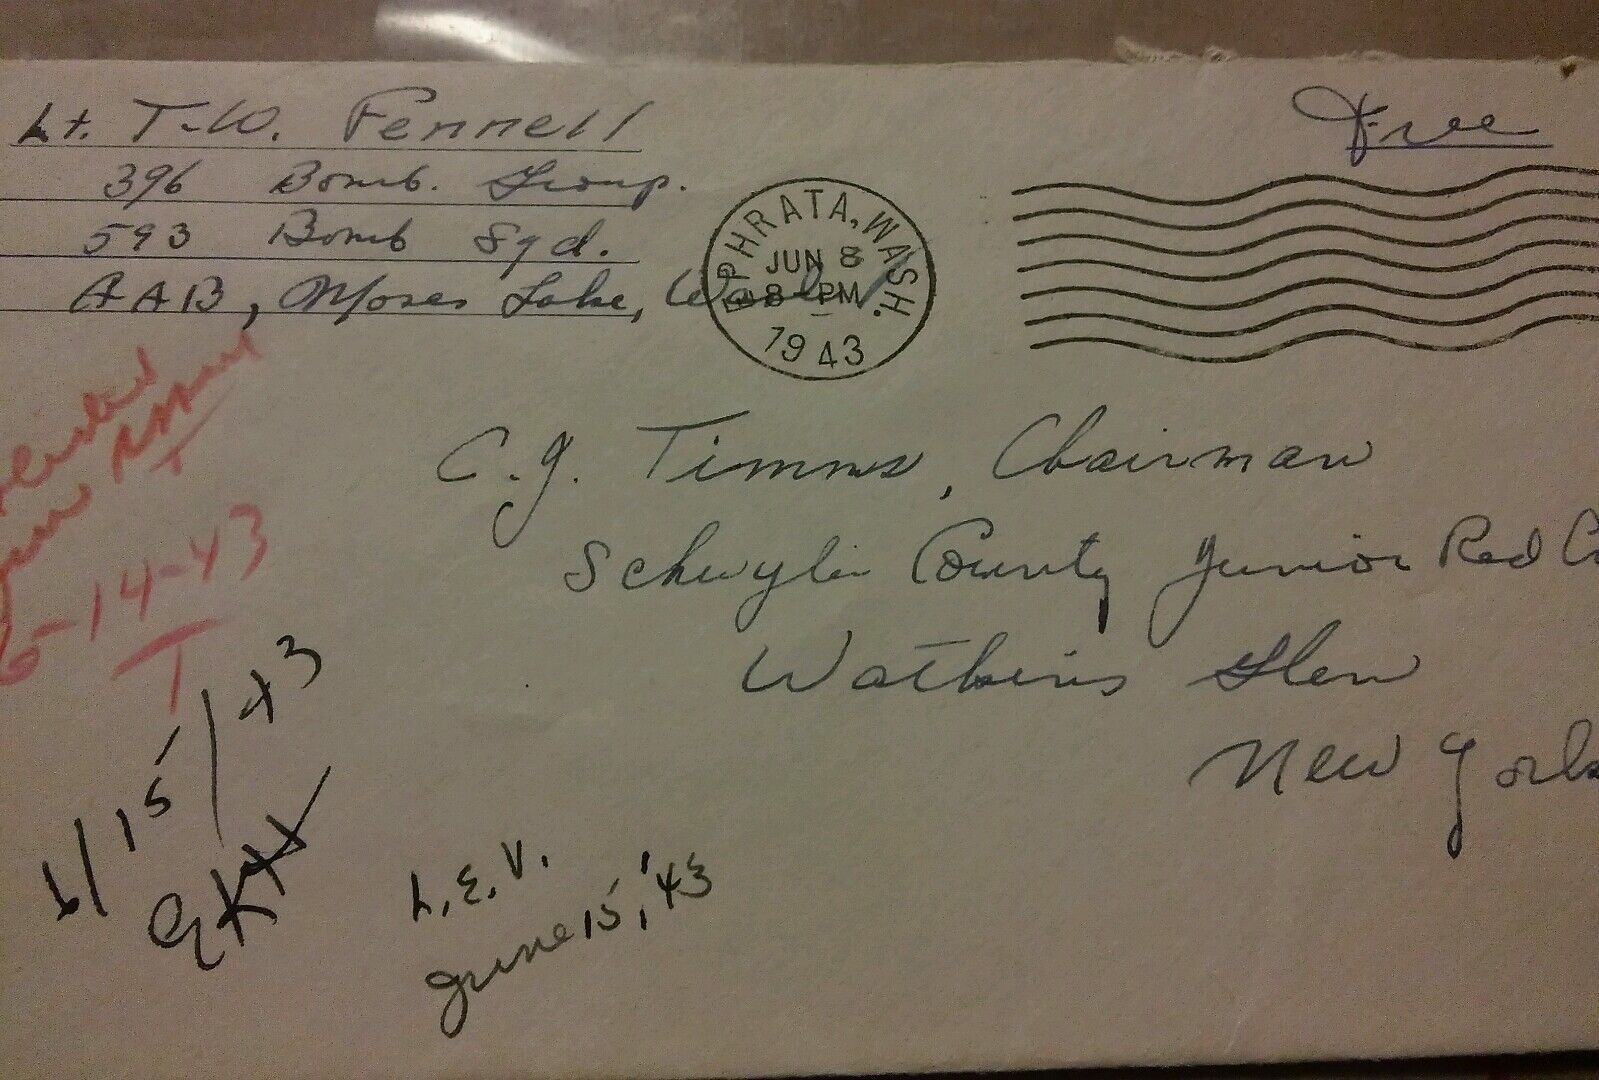 Lt. T. W. Fennell
396 Bomb. Group.
593 Bomb Sqd.
AAB, Moses Lake, Wash
Free
EPHRATA, WASH.
JUN 8
8 - PM
1943
C. J. Timms, Chairman
Schuyler County Junior Red
Watkins Glen
New York
6-14-43
6/15/43
L.E.V.
June 15, '43